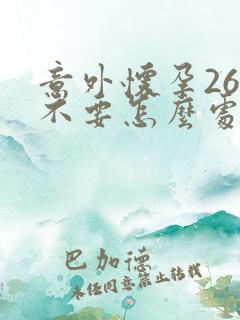 意外懷孕26
不要怎麼處
巴加德
未任同意禁止转载